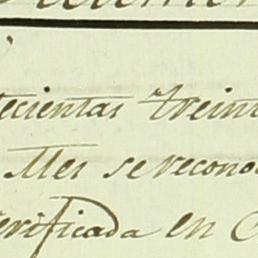 ecientas treint
Mes se recono
erificada en C